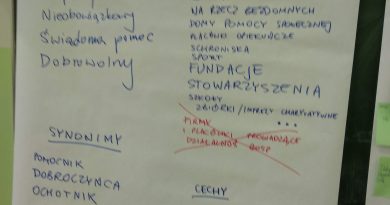 Nieobowiązkowy
Świadoma pomoc
Dobrowolny
NA RZECZ BEZDOMNYCH
DOMY POMOCY SPOŁECZNEJ
PLACÓWKI OPIEKUŃCZE
SCHRONISKA
SPORT
FUNDACJE
STOWARZYSZENIA
SZKOŁY
ZBIÓRKI / IMPREZY CHARYTATYWNE
...
FIRMY
I PLACÓWKI PROWADZĄCE
DZIAŁALNOŚĆ GOSP
SYNONIMY
POMOCNIK
DOBROCZYŃCA
OCHOTNIK
CECHY